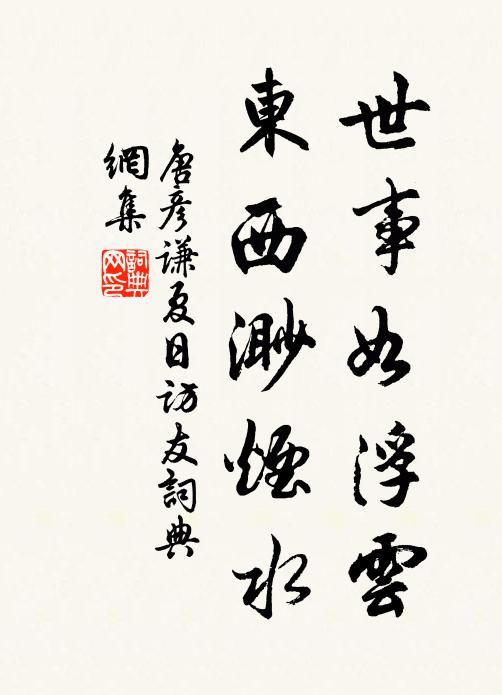 世事如浮雲
東西渺煙水
唐彥謙夏日訪友詞典
網集
詞典網印